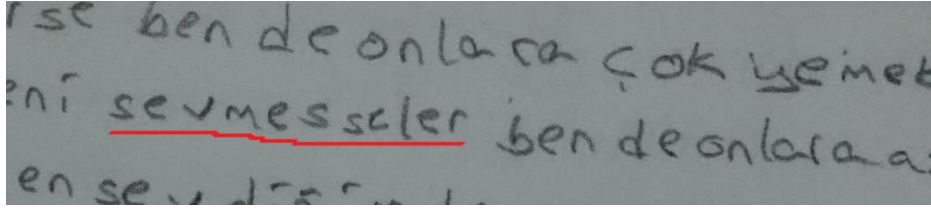 se ben de onlara çok yemek
eni sevmesseler ben de onlara a
en sev